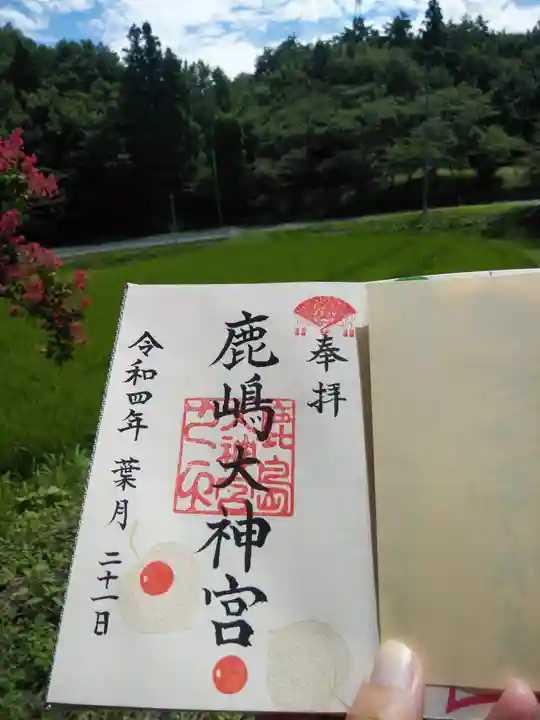 奉拝
鹿嶋大神宮
令和四年 葉月 二十一日